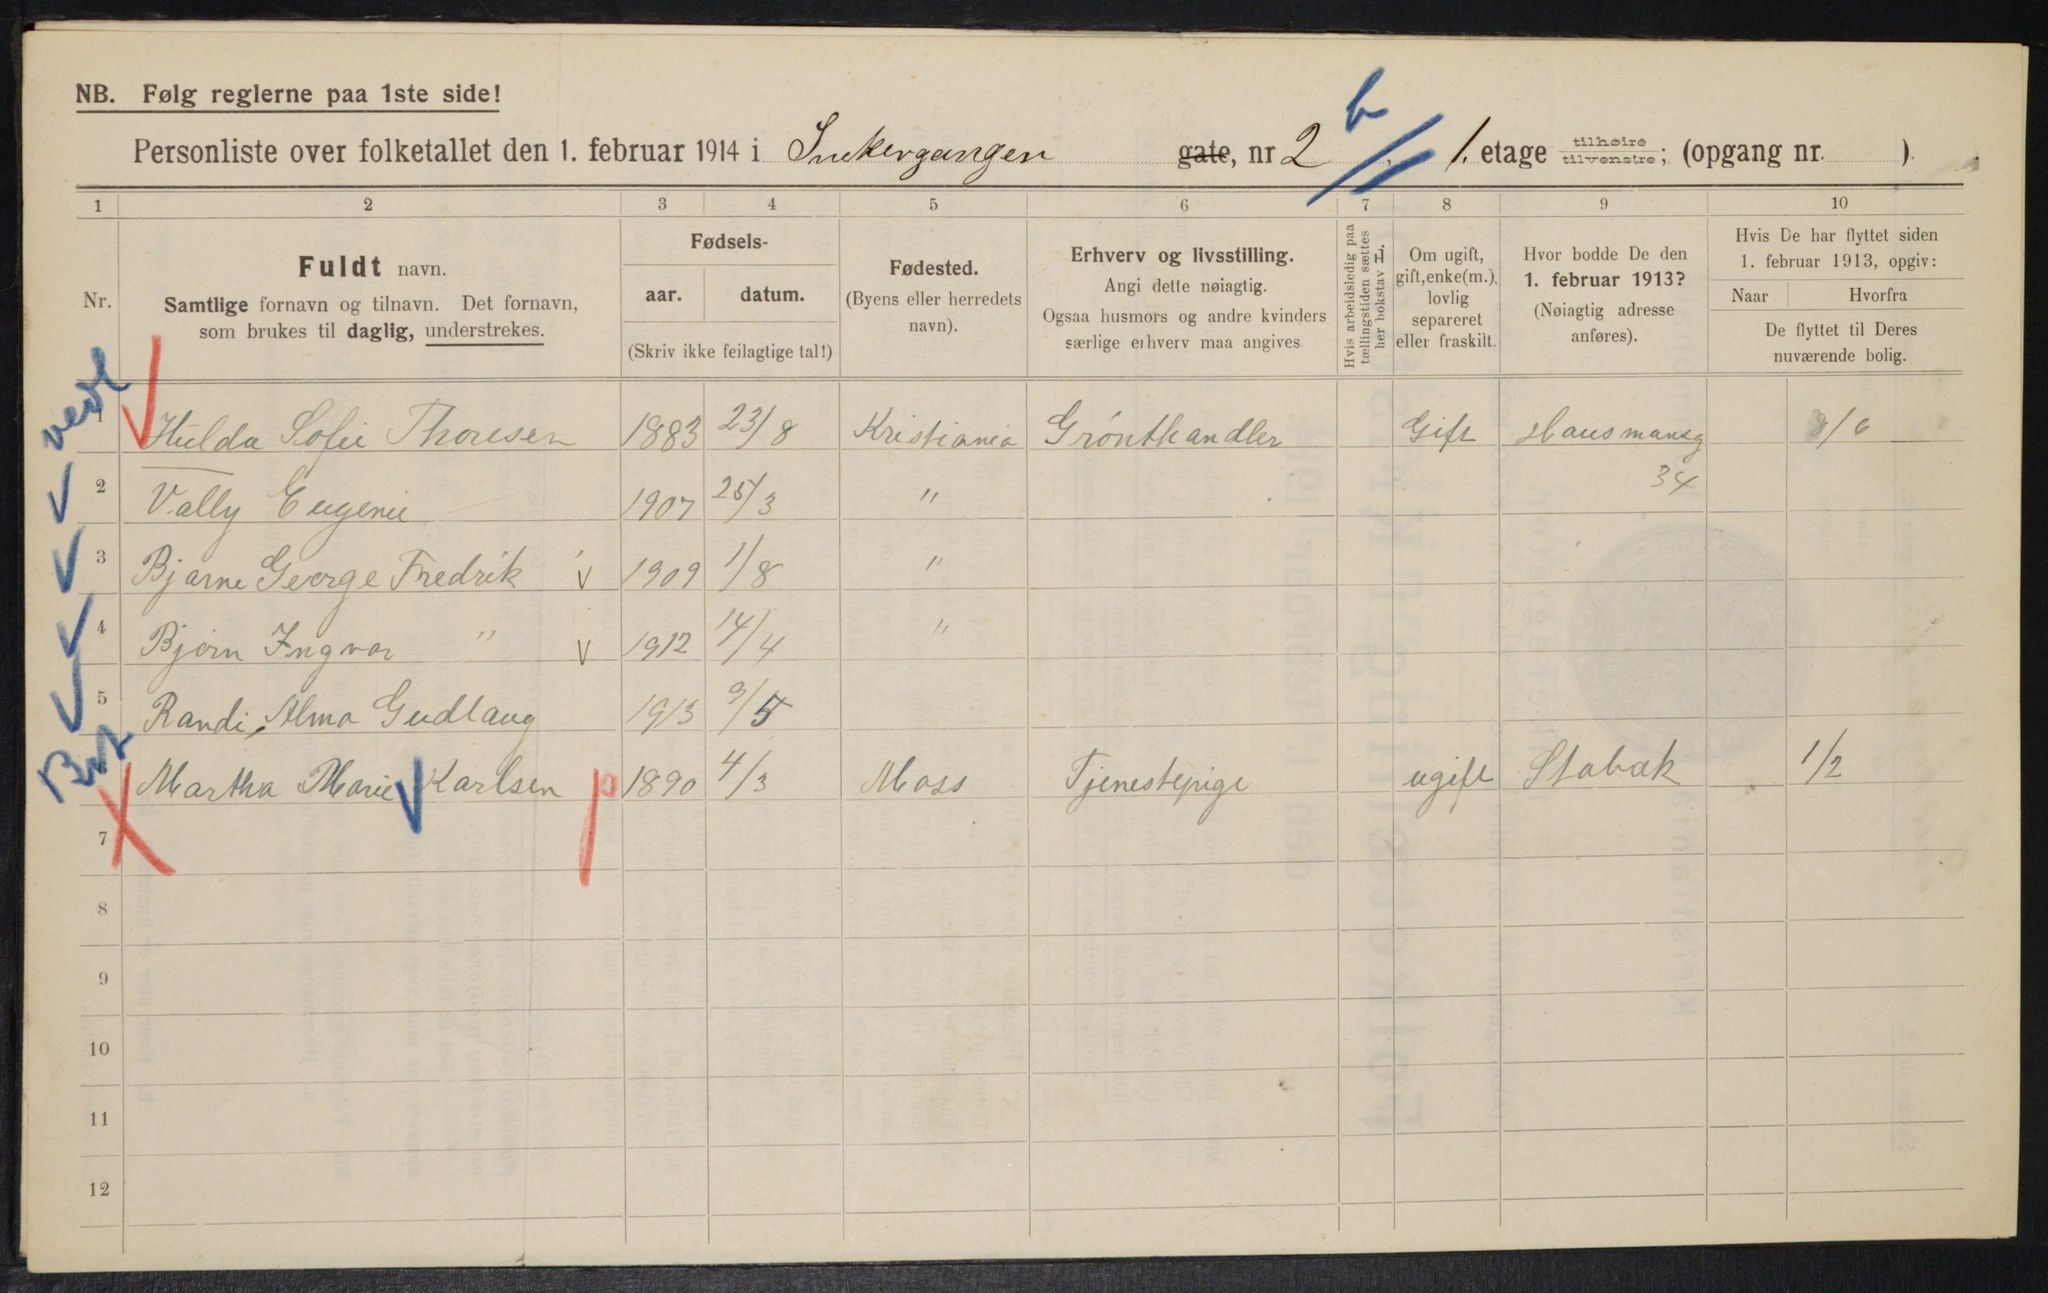 NB. Følg reglerne paa 1ste side!
Personliste over folketallet den 1. februar 1914 i Snekergangen gate, nr 2 b 1. etage tilhøire tilvenstre; (opgang nr. ).
1 2 3 4 5 6 7 8 9 10
Nr.
Fuldt navn.
Samtlige fornavn og tilnavn. Det fornavn,
som brukes til daglig, understrekes.
Fødsels-
aar. datum.
(Skriv ikke feilagtige tal!)
Fødested.
(Byens eller herredets
navn).
Erhverv og livsstilling.
Angi dette nøiagtig.
Ogsaa husmors og andre kvinders
særlige erhverv maa angives
Hvis arbeidsledig paa
tællingstiden sættes
her bokstav L.
Om ugift,
gift, enke(m.),
lovlig
separeret
eller fraskilt.
Hvor bodde De den
1. februar 1913?
(Nøiagtig adresse
anføres).
Hvis De har flyttet siden
1. februar 1913, opgiv:
Naar Hvorfra
De flyttet til Deres
nuværende bolig.
1 Hulda Sofie Thoresen 1883 23/8 Kristiania Grønthandler Gift Hausmansg 8/6
34
2 Vally Eugenie 1907 25/3 "
3 Bjarne George Fredrik v 1909 1/8 "
4 Bjørn Ingvar " v 1912 14/4 "
5 Randi Alma Gudlaug 1913 9/5
6 Martha Marie Karlsen p 1890 4/3 Moss Tjenestepige ugift Stabæk 1/2
7
8
9
10
11
12